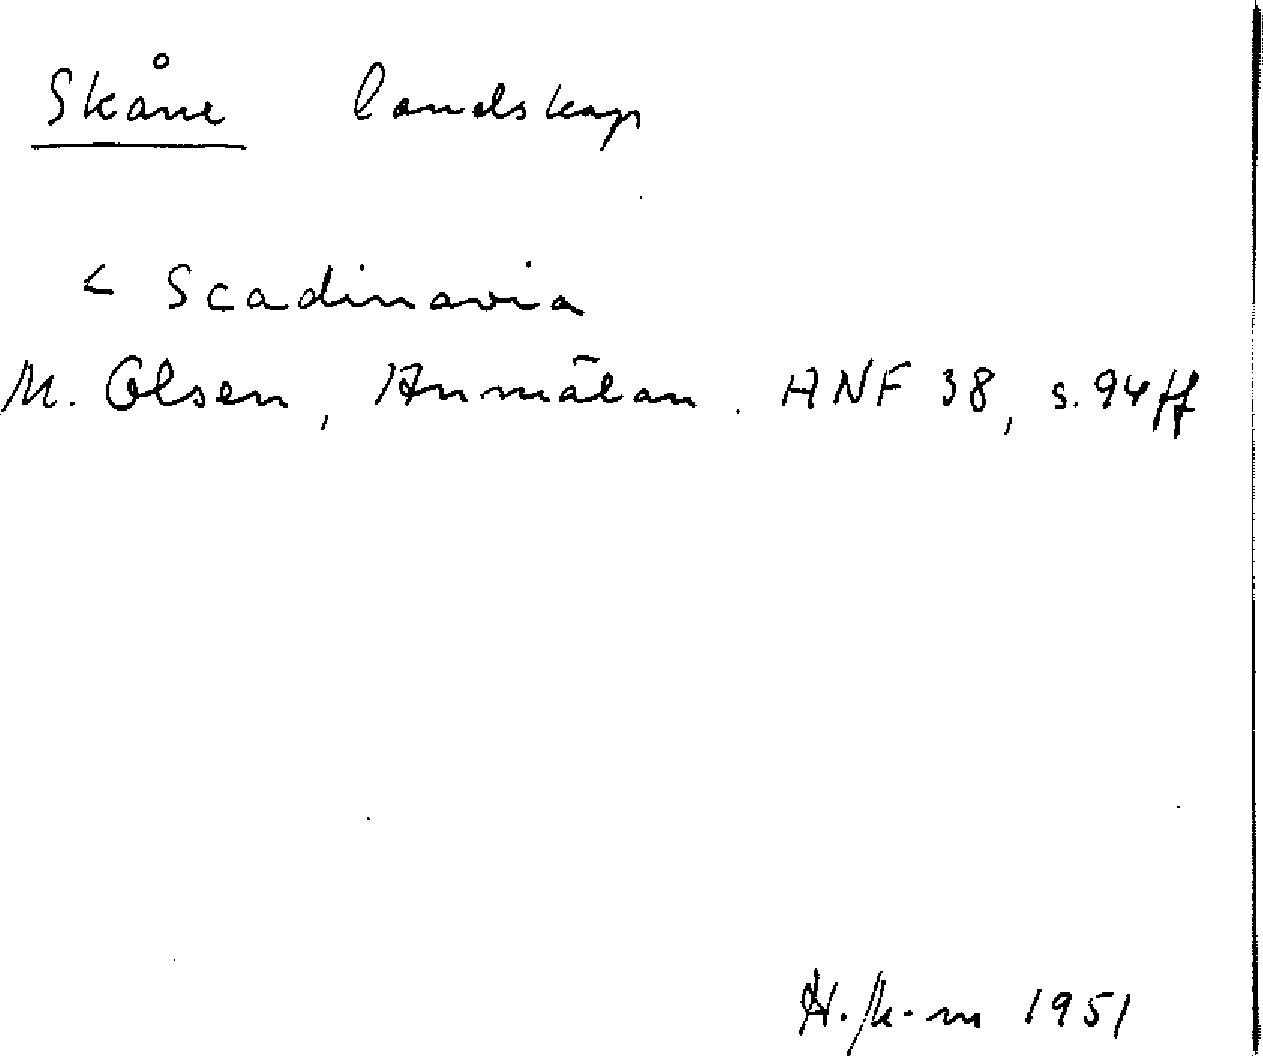 Skåne landskap
< Scadinavia
M. Olsen, Anmälan. ANF 38, s. 94 ff
1951